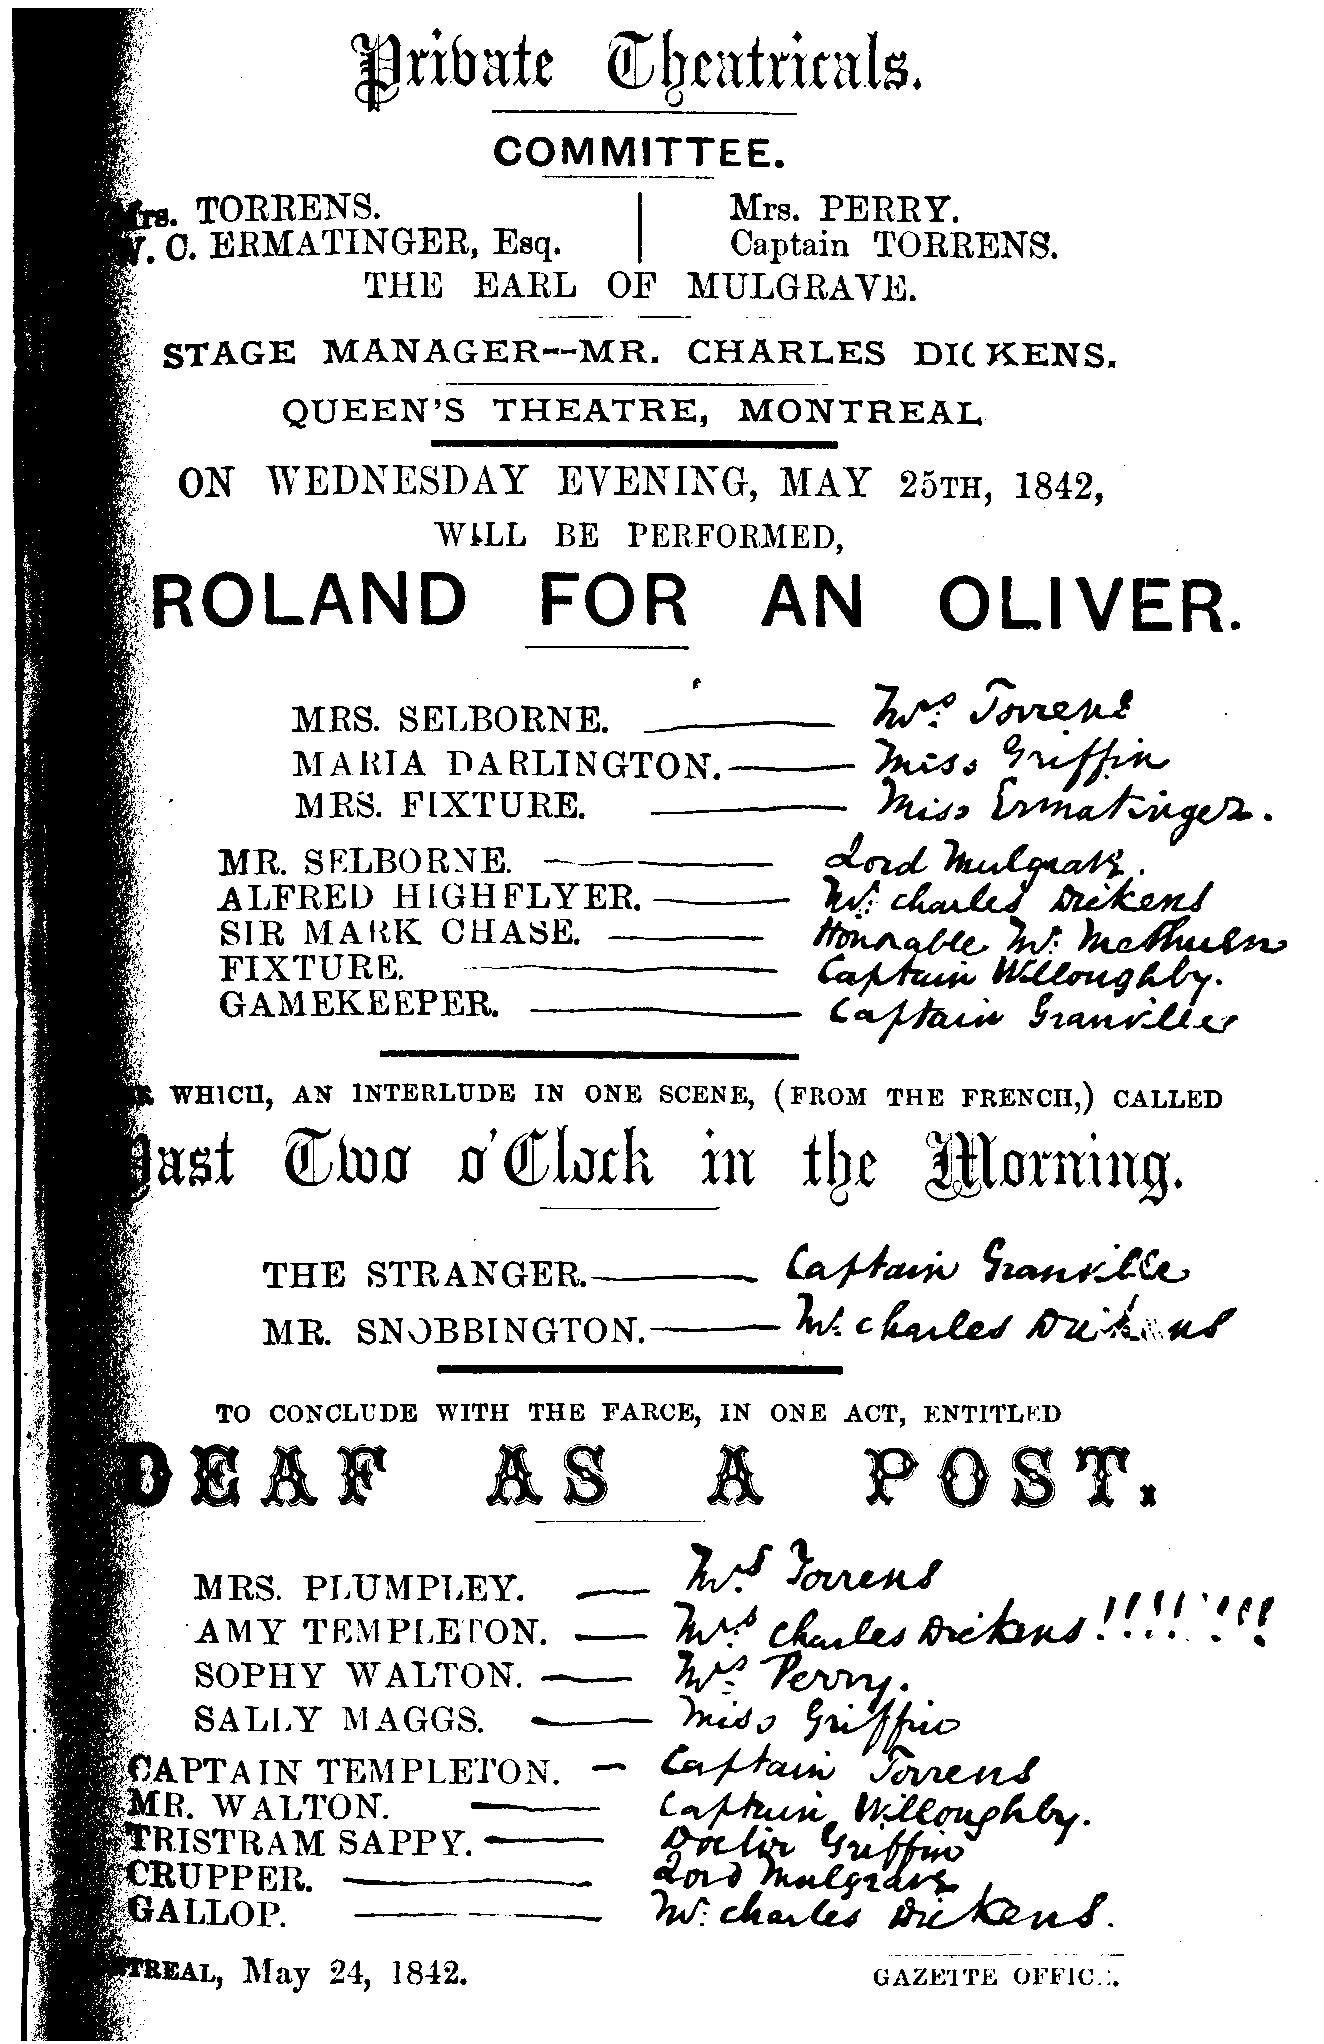 Private Theatricals.
COMMITTEE.
Mrs. TORRENS.
W. C. ERMATINGER, Esq.
Mrs. PERRY.
Captain TORRENS.
THE EARL OF MULGRAVE.
STAGE MANAGER--MR. CHARLES DICKENS.
QUEEN'S THEATRE, MONTREAL
ON WEDNESDAY EVENING, MAY 25TH, 1842,
WILL BE PERFORMED,
ROLAND FOR AN OLIVER.
MRS. SELBORNE. Mrs. Torrens
MARIA DARLINGTON. Miss Griffin
MRS. FIXTURE. Miss Ermatinger.
MR. SELBORNE. Lord Mulgrave.
ALFRED HIGHFLYER. Mr. Charles Dickens
SIR MARK CHASE. Honorable Mr. Methuen
FIXTURE. Captain Willoughby.
GAMEKEEPER. Captain Granville
WHICH, AN INTERLUDE IN ONE SCENE, (FROM THE FRENCH,) CALLED
Past Two o'Clock in the Morning.
THE STRANGER. Captain Granville
MR. SNOBBINGTON. Mr. Charles Dickens
TO CONCLUDE WITH THE FARCE, IN ONE ACT, ENTITLED
DEAF AS A POST.
MRS. PLUMPLEY. Mrs. Torrens
AMY TEMPLETON. Mrs. Charles Dickens!!!!!!!!
SOPHY WALTON. Mrs. Perry.
SALLY MAGGS. Miss Griffin
CAPTAIN TEMPLETON. Captain Torrens
MR. WALTON. Captain Willoughby.
TRISTRAM SAPPY. Doctor Griffin
CRUPPER. Lord Mulgrave
GALLOP. Mr. Charles Dickens.
TREAL, May 24, 1842.
GAZETTE OFFICE.